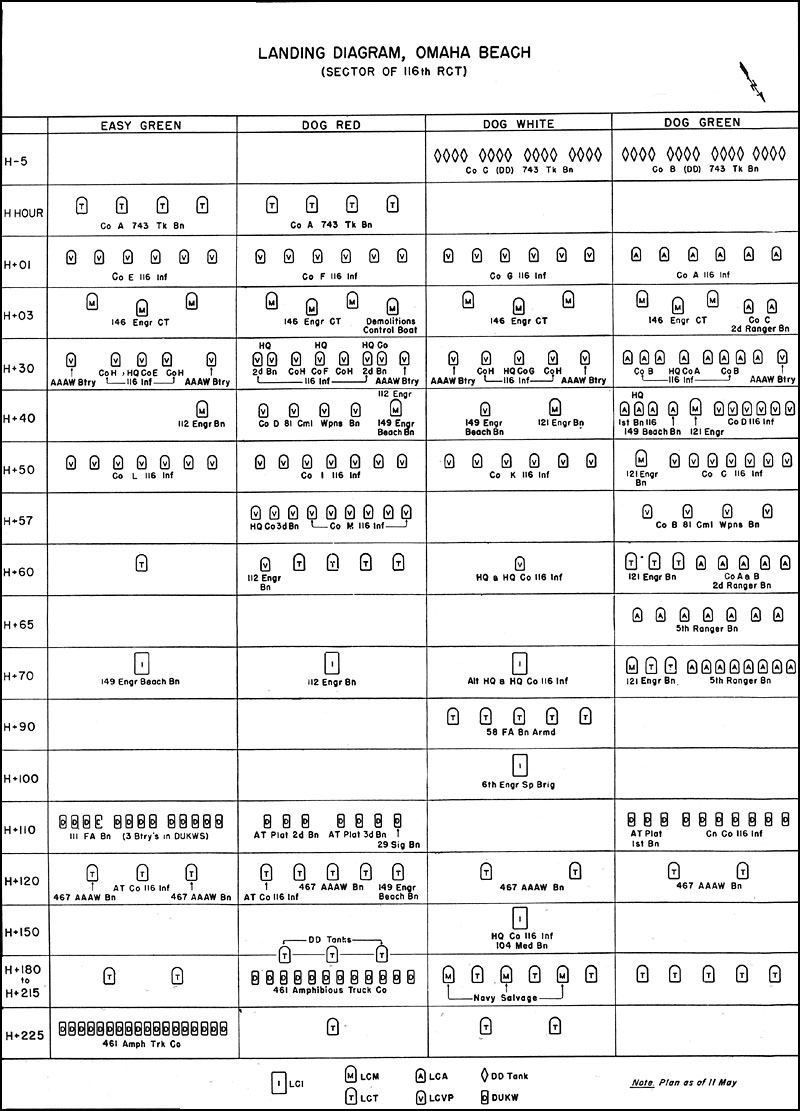 LANDING DIAGRAM, OMAHA BEACH
(SECTOR OF 116th RCT)
EASY GREEN DOG RED DOG WHITE DOG GREEN
H-5
Co C (DD) 743 Tk Bn Co B (DD) 743 Tk Bn
H HOUR T T T T T T T T
Co A 743 Tk Bn Co A 743 Tk Bn
H+01 V V V V V V V V V V V V V V V V V V A A A A A A
Co E 116 Inf Co F 116 Inf Co G 116 Inf Co A 116 Inf
H+03 M M M M M M M M M M M M M A A
146 Engr CT 146 Engr CT Demolitions Control Boat 146 Engr CT 146 Engr CT Co C 2d Ranger Bn
HQ HQ HQ Co
H+30 V V V V V V V V V V V V V V V V V V V A A A A A A A A V
AAAW Btry Co H HQ Co E Co H AAAW Btry 2d Bn Co H Co F Co H 2d Bn AAAW Btry AAAW Btry Co H HQ Co G Co H AAAW Btry Co B HQ Co A Co B AAAW Btry
116 Inf 116 Inf 116 Inf 116 Inf
112 Engr HQ
H+40 M V V V V M V M A A A A M V V V V V V
112 Engr Bn Co D 81 Cml Wpns Bn 149 Engr Beach Bn 149 Engr Beach Bn 121 Engr Bn 1st Bn 116 149 Beach Bn 121 Engr Co D 116 Inf
H+50 V V V V V V V V V V V V V V V V V V V V M V V V V V V
Co L 116 Inf Co I 116 Inf Co K 116 Inf 121 Engr Bn Co C 116 Inf
H+57 V V V V V V V V V V V V
HQ Co 3d Bn Co M 116 Inf Co B 81 Cml Wpns Bn
H+60 T V T T T T V T T T A A A A A
112 Engr Bn HQ & HQ Co 116 Inf 121 Engr Bn Co A & B 2d Ranger Bn
H+65 A A A A A A A
5th Ranger Bn
H+70 I I I M T T A A A A A A A A
149 Engr Beach Bn 112 Engr Bn Alt HQ & HQ Co 116 Inf 121 Engr Bn. 5th Ranger Bn
H+90 T T T T T
58 FA Bn Armd
H+100 I
6th Engr Sp Brig
H+110 D D D D D D D D D D D D D D D D D D D D D D D D D D D D D
111 FA Bn (3 Btry's in DUKWS) AT Plat 2d Bn AT Plat 3d Bn 29 Sig Bn AT Plat 1st Bn Cn Co 116 Inf
H+120 T T T T T T T T T T T T
467 AAAW Bn AT Co 116 Inf 467 AAAW Bn AT Co 116 Inf 467 AAAW Bn 149 Engr Beach Bn 467 AAAW Bn 467 AAAW Bn
H+150 I
HQ Co 116 Inf
104 Med Bn
DD Tanks
T T T
H+180 to H+215 T T D D D D D D D D D D D D M T M T M T T T T T T
461 Amphibious Truck Co Navy Salvage
H+225 D D D D D D D D D D D D D D D D D T T T
461 Amph Trk Co
I LCI M LCM A LCA DD Tank Note. Plan as of 11 May
T LCT V LCVP D DUKW